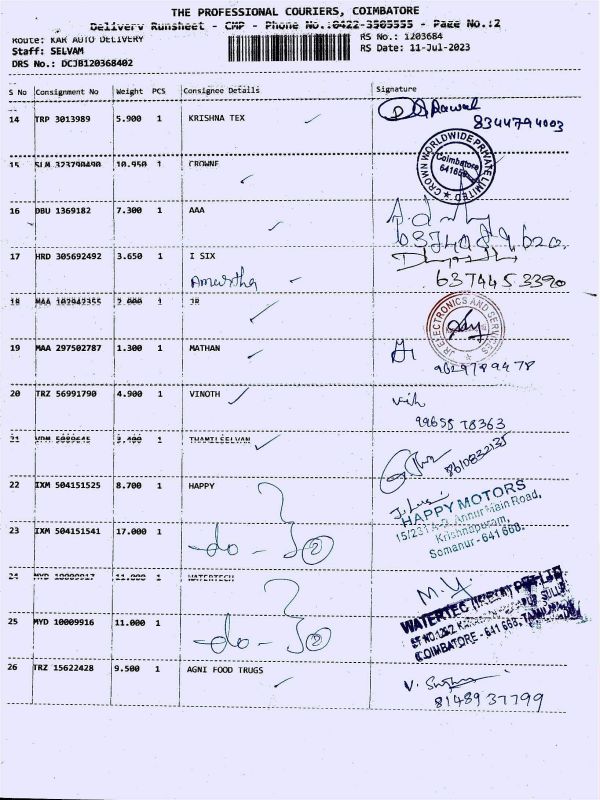 THE PROFESSIONAL COURIERS, COIMBATORE
Delivery Runsheet - CMP - Phone No.:0422-3505555 - Page No.:2
Route: KAR AUTO DELIVERY RS No.: 1203684
Staff: SELVAM RS Date: 11-Jul-2023
DRS No.: DCJB120368402
S No Consignment No Weight PCS Consignee Details Signature
14 TRP 3013989 5.900 1 KRISHNA TEX
8344794003
15 SLM 323790490 10.950 1 CROWNE
CROWN WORLDWIDE PRIVATE LIMITED
Coimbatore
16 DBU 1369182 7.300 1 AAA
17 HRD 305692492 3.650 1 I SIX
Amurtha
6374453390
18 MAA 102942355 2.000 1 JR
JR ELECTRONICS AND SERVICES
19 MAA 297502787 1.300 1 MATHAN
20 TRZ 56991790 4.900 1 VINOTH
9965578363
21 5089645 3.400 1 THAMILSELVAN
8610832135
22 IXM 504151525 8.700 1 HAPPY
HAPPY MOTORS
15/231 A-2, Annur Main Road,
Krishnapuram,
Somanur - 641 668.
23 IXM 504151541 17.000 1
-do-
2
24 MYD 10009917 11.000 1 WATERTECH
M.Y
25 MYD 10009916 11.000 1
-do-
2
COIMBATORE - 641 668,
26 TRZ 15622428 9.500 1 AGNI FOOD TRUGS
8148937799